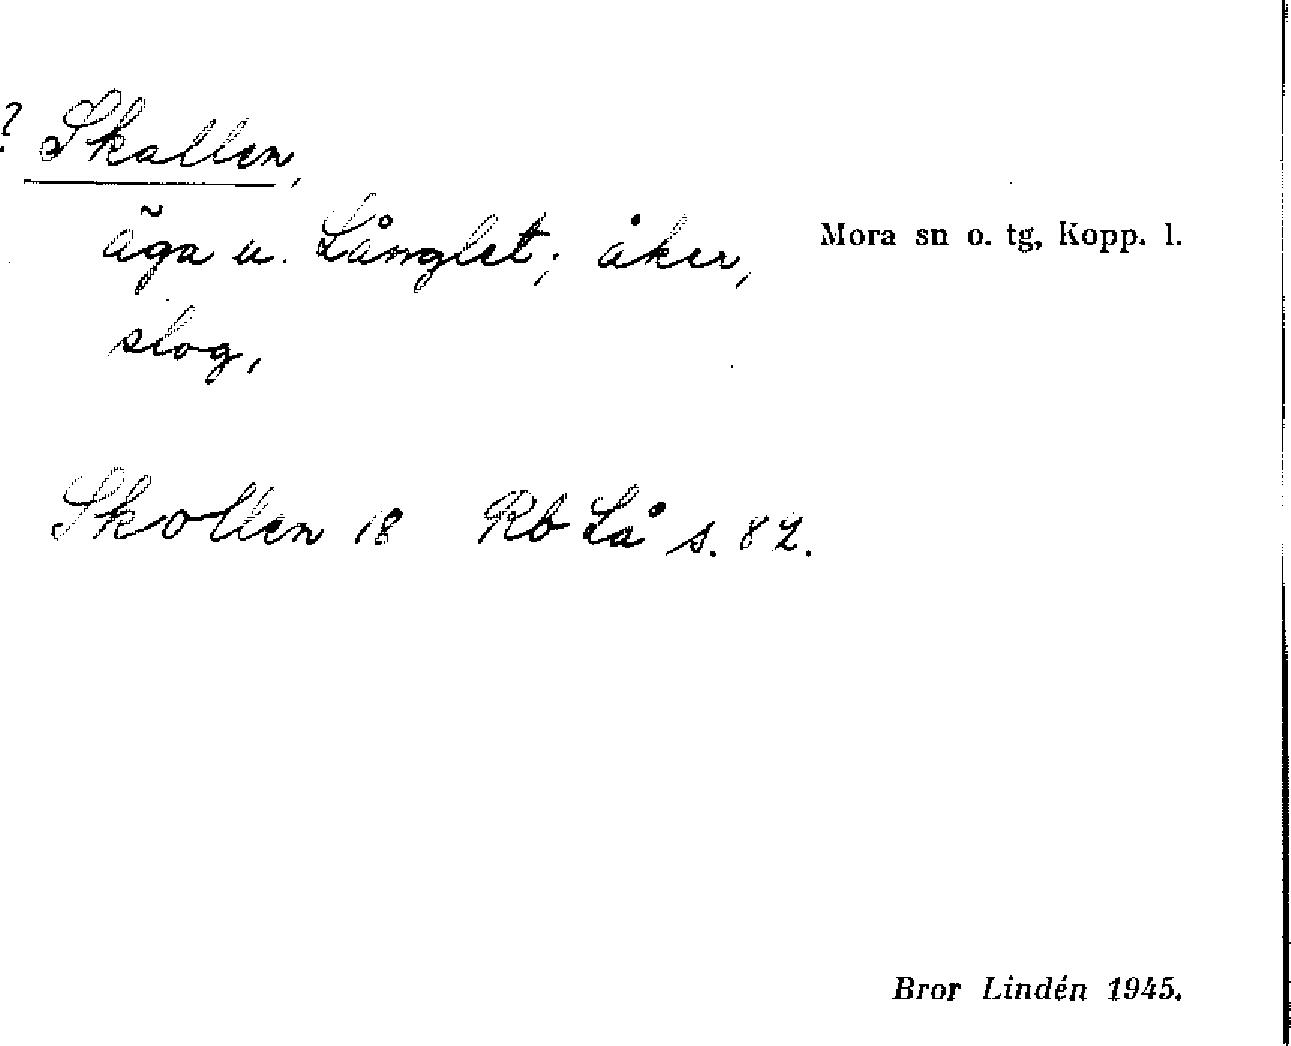 ? Skallen,
äga u. Långlet; åker,
Mora sn o. tg, Kopp. l.
slog,
Skollen 18 Rb Lå s. 82.
Bror Lindén 1945.